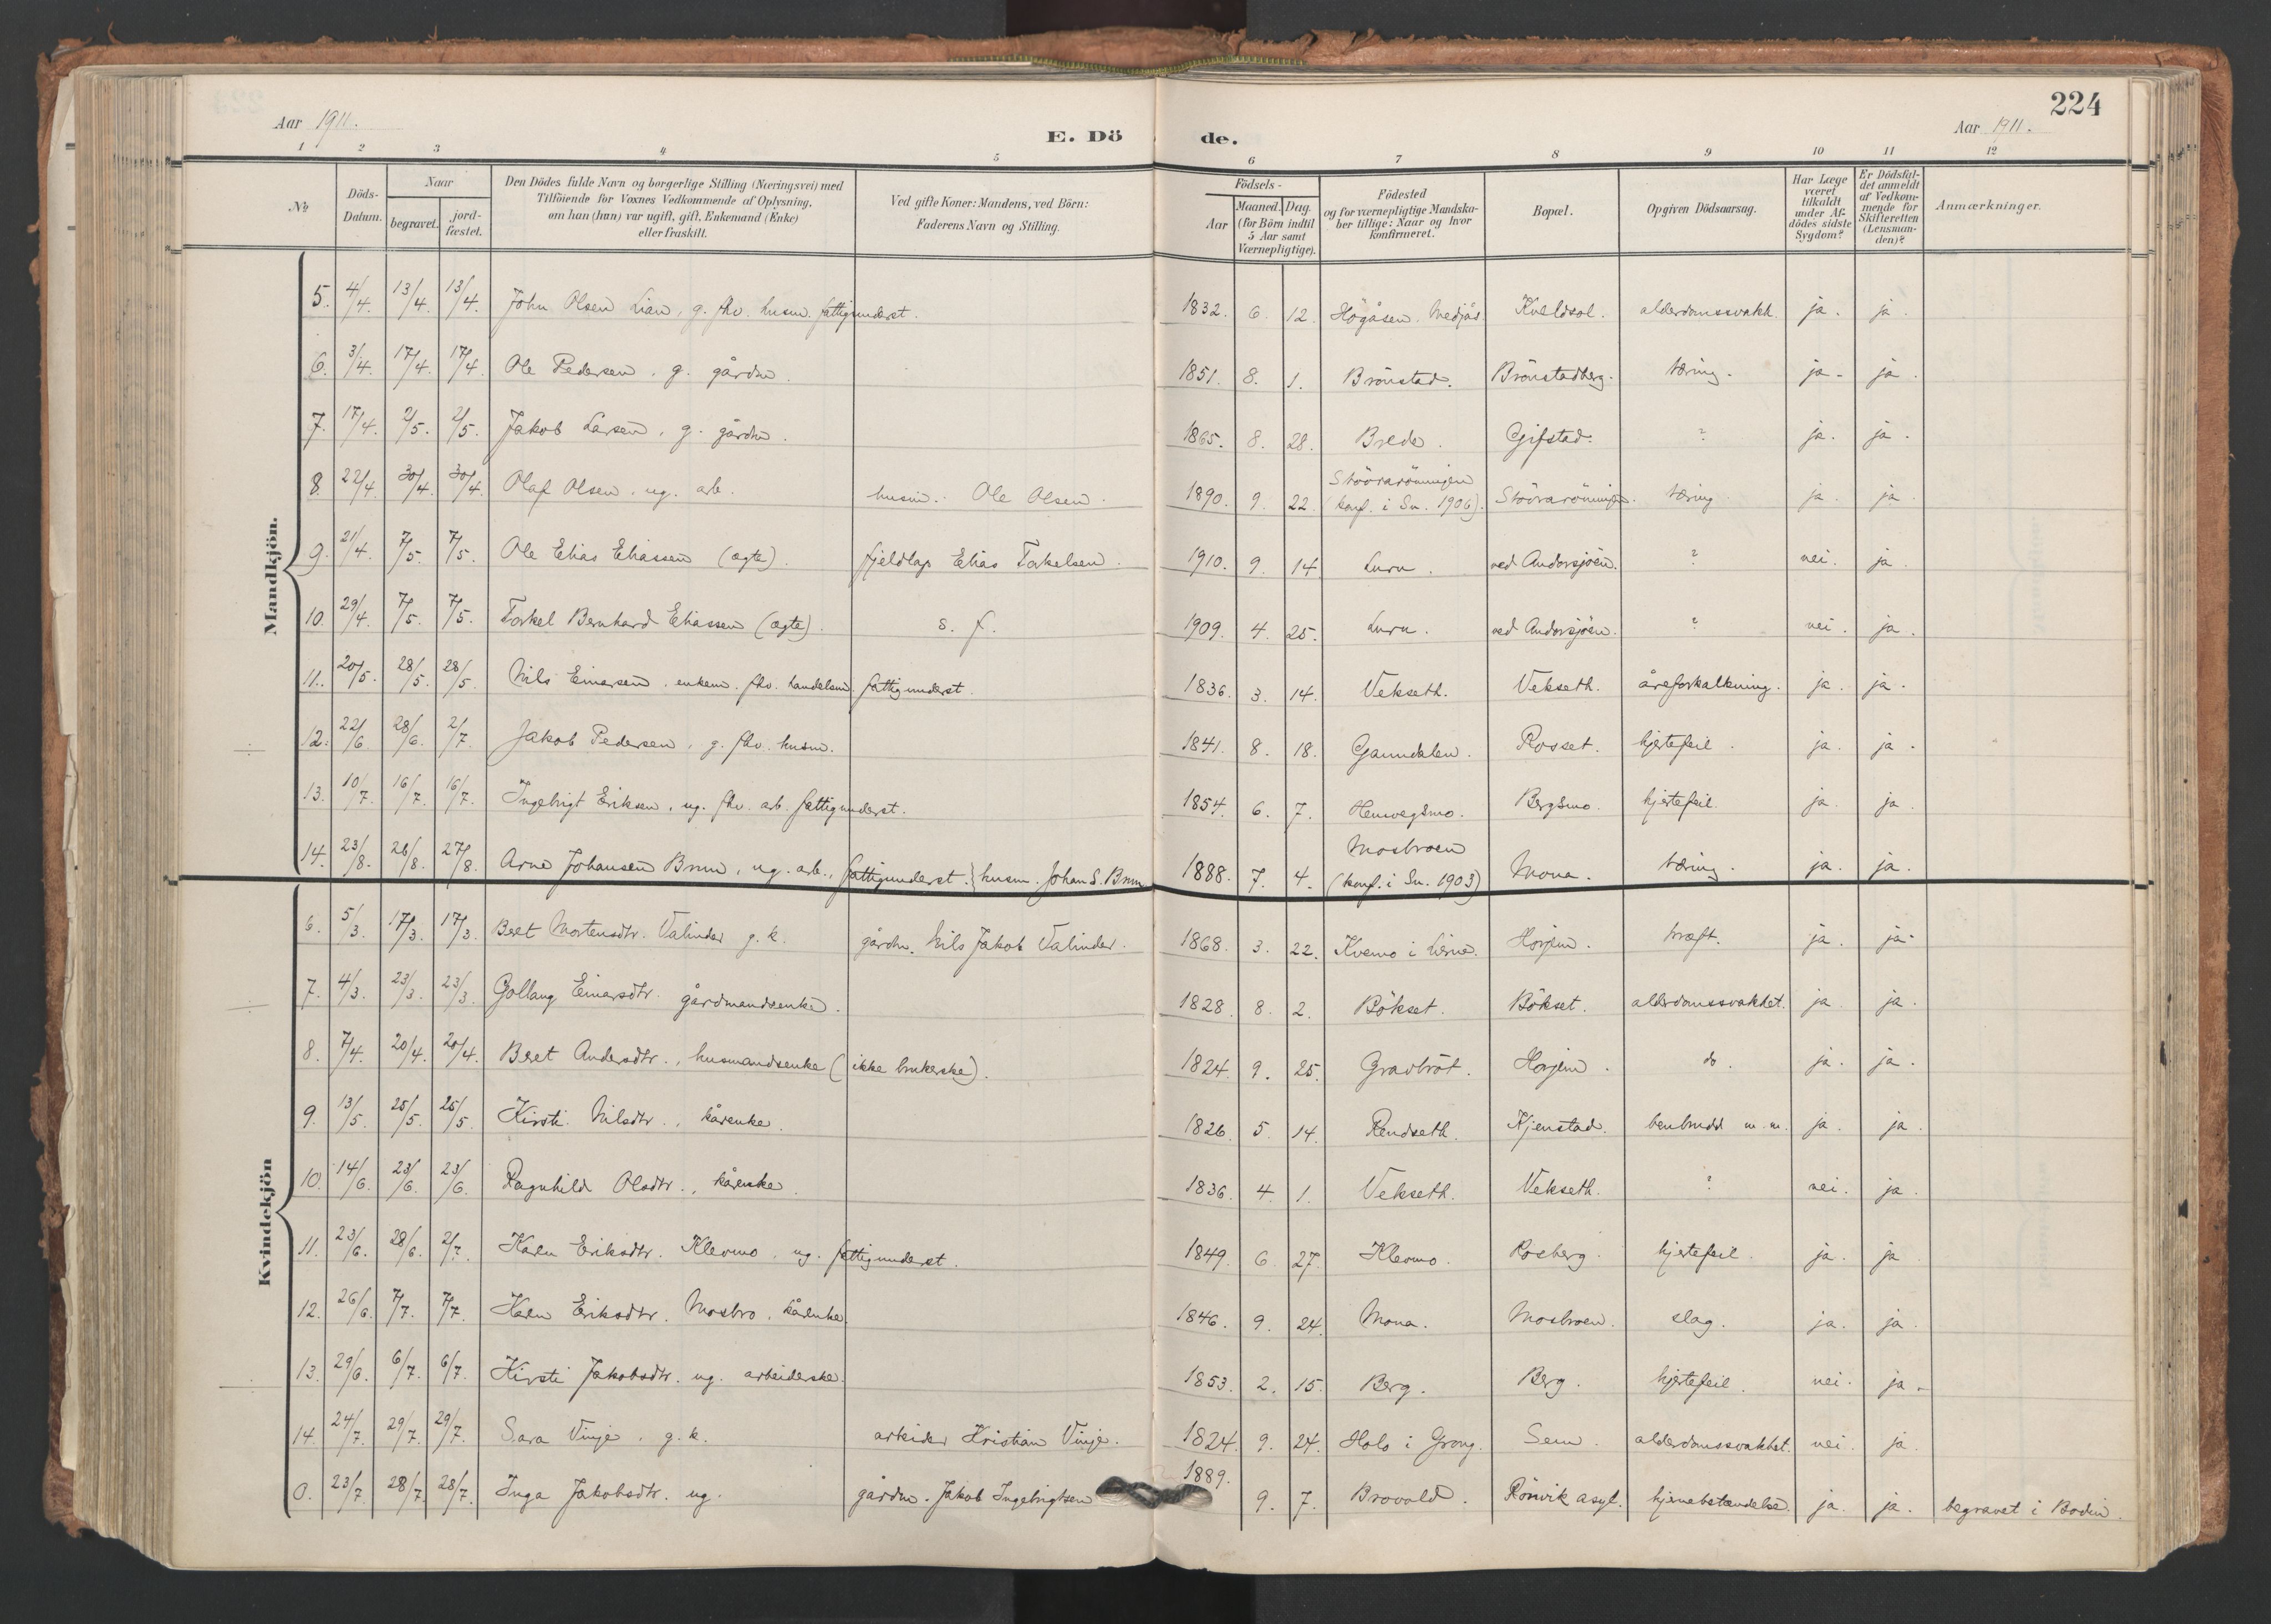 224
Aar 1911.
E. Dö de.
Aar 1911.
1 2 3 4 5 6 7 8 9 10 11 12
№ Döds-Datum. Naar begravet. jord-fæstet. Den Dödes fulde Navn og borgerlige Stilling (Næringsvei) med Tilföiende for Voxnes Vedkommende af Oplysning, om han (hun) var ugift, gift, Enkemand (Enke) eller fraskilt. Ved gifte Koner: Mandens, ved Börn: Faderens Navn og Stilling. Födsels- Aar Maaned. Dag. (for Börn indtil 5 Aar samt Værnepligtige). Födested og for værnepligtige Mandskaber tillige: Naar og hvor konfirmeret. Bopæl. Opgiven Dödsaarsag. Har Læge været tilkaldt under Afdödes sidste Sygdom? Er Dödsfaldet anmeldt af Vedkommende for Skifteretten (Lensmanden)? Anmærkninger.
Mandkjön.
5. 4/4. 13/4 13/4. John Olsen Lian, g. fhv. husm. fattigunderst. 1832. 6. 12. Högåsen. Medjå. Kveldsol. alderdomssvakh. ja. ja.
6. 3/4. 17/4. 17/4. Ole Pedersen, g. gårdm. 1851. 8. 1. Brönstad. Brönstadberg. tæring. ja. ja.
7. 17/4. 2/5. 2/5. Jakob Larsen, g. gårdm. 1865. 8. 28. Brede. Gifstad. ? ja. ja.
8. 22/4. 30/4. 30/4. Olaf Olsen, ug. arb. husm. Ole Olsen. 1890. 9. 22. Stöörarönningen (konf. i Sn. 1906). Stöörarönningen. tæring. ja. ja.
9. 21/4. 7/5. 7/5. Ole Elias Eliassen (ægte). fjeldlap Elias Torkelsen. 1910. 9. 14. Luru. ved Andorsjöen. ? nei. ja.
10. 29/4. 7/5. 7/5. Torkel Bernhard Eliassen (ægte). s. f. 1909. 4. 25. Luru. ved Andorsjöen. ? nei. ja.
11. 20/5. 28/5. 28/5. Nils Einarsen, enkem. fhv. handelsm. fattigunderst. 1836. 3. 14. Vekseth. Vekseth. åreforkalkning. ja. ja.
12. 22/6. 28/6. 2/7. Jakob Pedersen, g. fhv. husm. 1841. 8. 18. Gamdalen. Rosset. hjertefeil. ja. ja.
13. 10/7. 16/7. 16/7. Ingebrigt Eriksen, ug. fhv. arb. fattigunderst. 1854. 6. 7. Homvegsmo. Bergsmo. hjertefeil. ja. ja.
14. 23/8. 26/8. 27/8. Arne Johansen Brun, ug. arb., fattigunderst. } husm. Johan S. Brun 1888. 7. 4. Mosbroen (konf. i Sn. 1903) Mona. tæring. ja. ja.
Kvindekjön
6. 5/3. 17/3. 17/3. Beret Mortensdtr. Valinder g. k. gårdm. Nils Jakob Valinder. 1868. 3. 22. Kvemo i Lierne. Horjem. kræft. ja. ja.
7. 4/3. 23/3. 23/3. Gollaug Einarsdtr. gårdmandsenke. 1828. 8. 2. Bökset. Bökset. alderdomssvakhet. ja. ja.
8. 7/4. 20/4. 20/4. Beret Andersdtr., husmandsenke (ikke brukerske). 1824. 9. 25. Gravbröt. Horjem. do. ja. ja.
9. 13/5. 25/5. 25/5. Kirsti Nilsdtr., kårenke. 1826. 5. 14. Rendseth. Kjenstad. benbrudd m. m. ja. ja.
10. 14/6. 23/6. 23/6. Ragnhild Olsdtr., kårenke. 1836. 4. 1. Vekseth. Vekseth. ? nei. ja.
11. 23/6. 28/6. 2/7. Karen Eriksdtr. Klevmo, ug. fattigunderst. 1849. 6. 27. Klevmo. Rosberg. hjertefeil. ja. ja.
12. 26/6. 7/7. 7/7. Karen Eriksdtr. Mosbro, kårenke. 1846. 9. 24. Mona. Mosbroen. slag. ja. ja.
13. 29/6. 6/7. 6/7. Kirsti Jakobsdtr. ug. arbeiderske. 1853. 2. 15. Berg. Berg. hjertefeil. nei. ja.
14. 24/7. 29/7. 29/7. Sara Vinje, g. k. arbeider Kristian Vinje. 1824. 9. 24. Holo i Grong. Sem. alderdomssvakhet. nei. ja.
0. 23/7. 28/7. 28/7. Inga Jakobsdtr. ug. gårdm. Jakob Ingebrigtsen 1889. 9. 7. Brovold. Rönvik asyl. hjernebetændelse. ja. ja. begravet i Bodin.